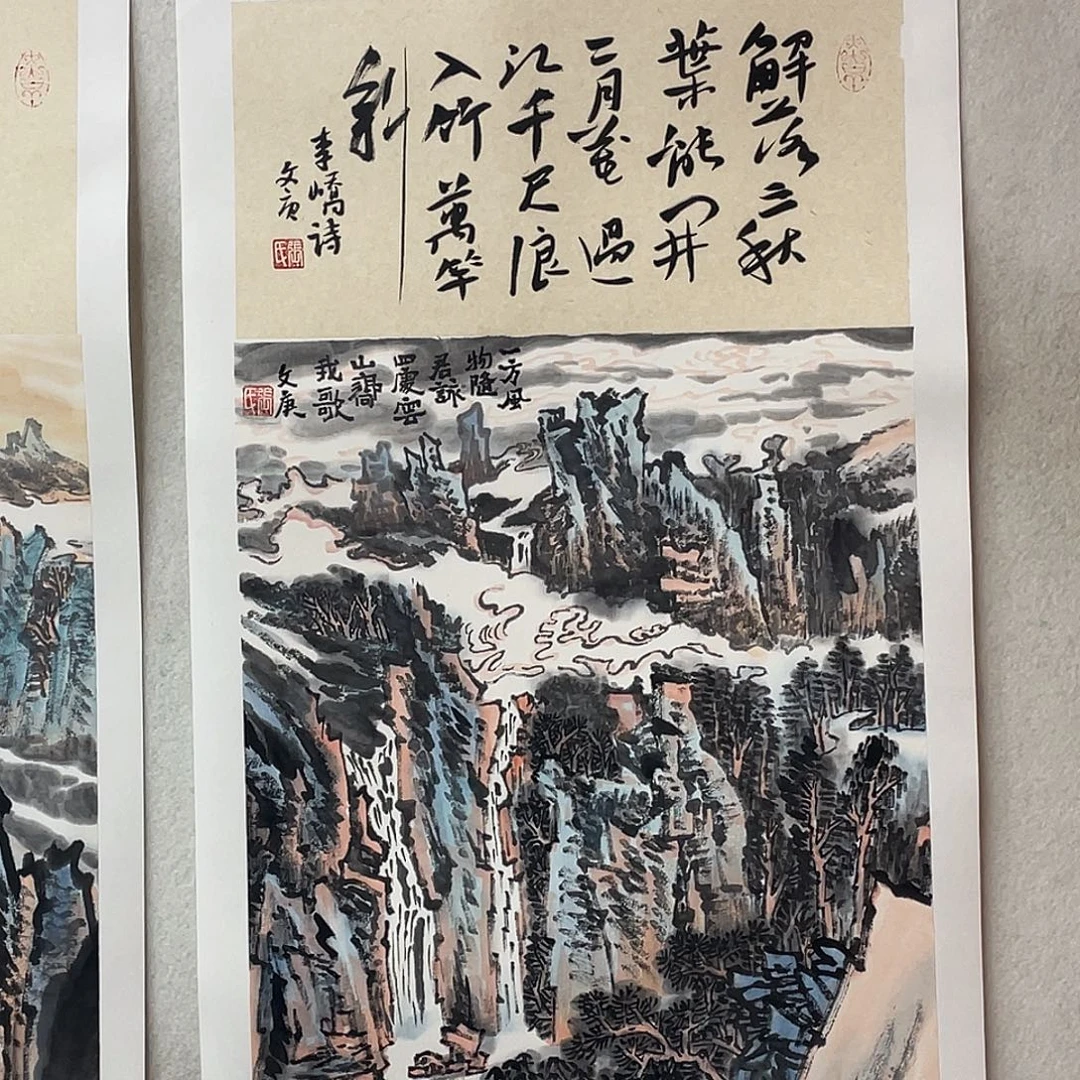 解落三秋
葉能開
二月花過
江千尺浪
入竹萬竿
斜
李嶠诗
文庚
張氏
一方風
物隨
君詠
四處雲
山
我歌
文庚
張氏